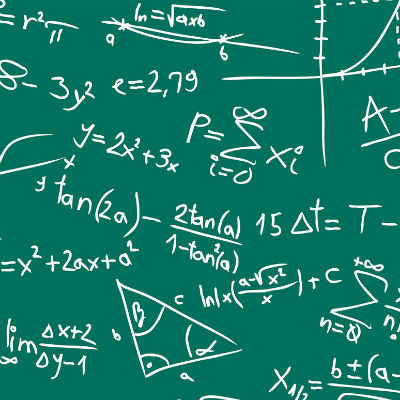 = r²π
ln = √axb
a
b
8 - 3y²
e=2,79
A-
y=2x²+3x
P= ∞ Σ i=0 xi
x
y
tan(2a) - 2tan(a) / 1-tan²(a)
15 Δt= T-
=x²+2ax+a²
ln|x(a-√x² / x)+C
+∞ Σ n=0
n!
β
c
b
α
a
lim Δx+2 / Δy-1
∞
X1/2= b±(a-